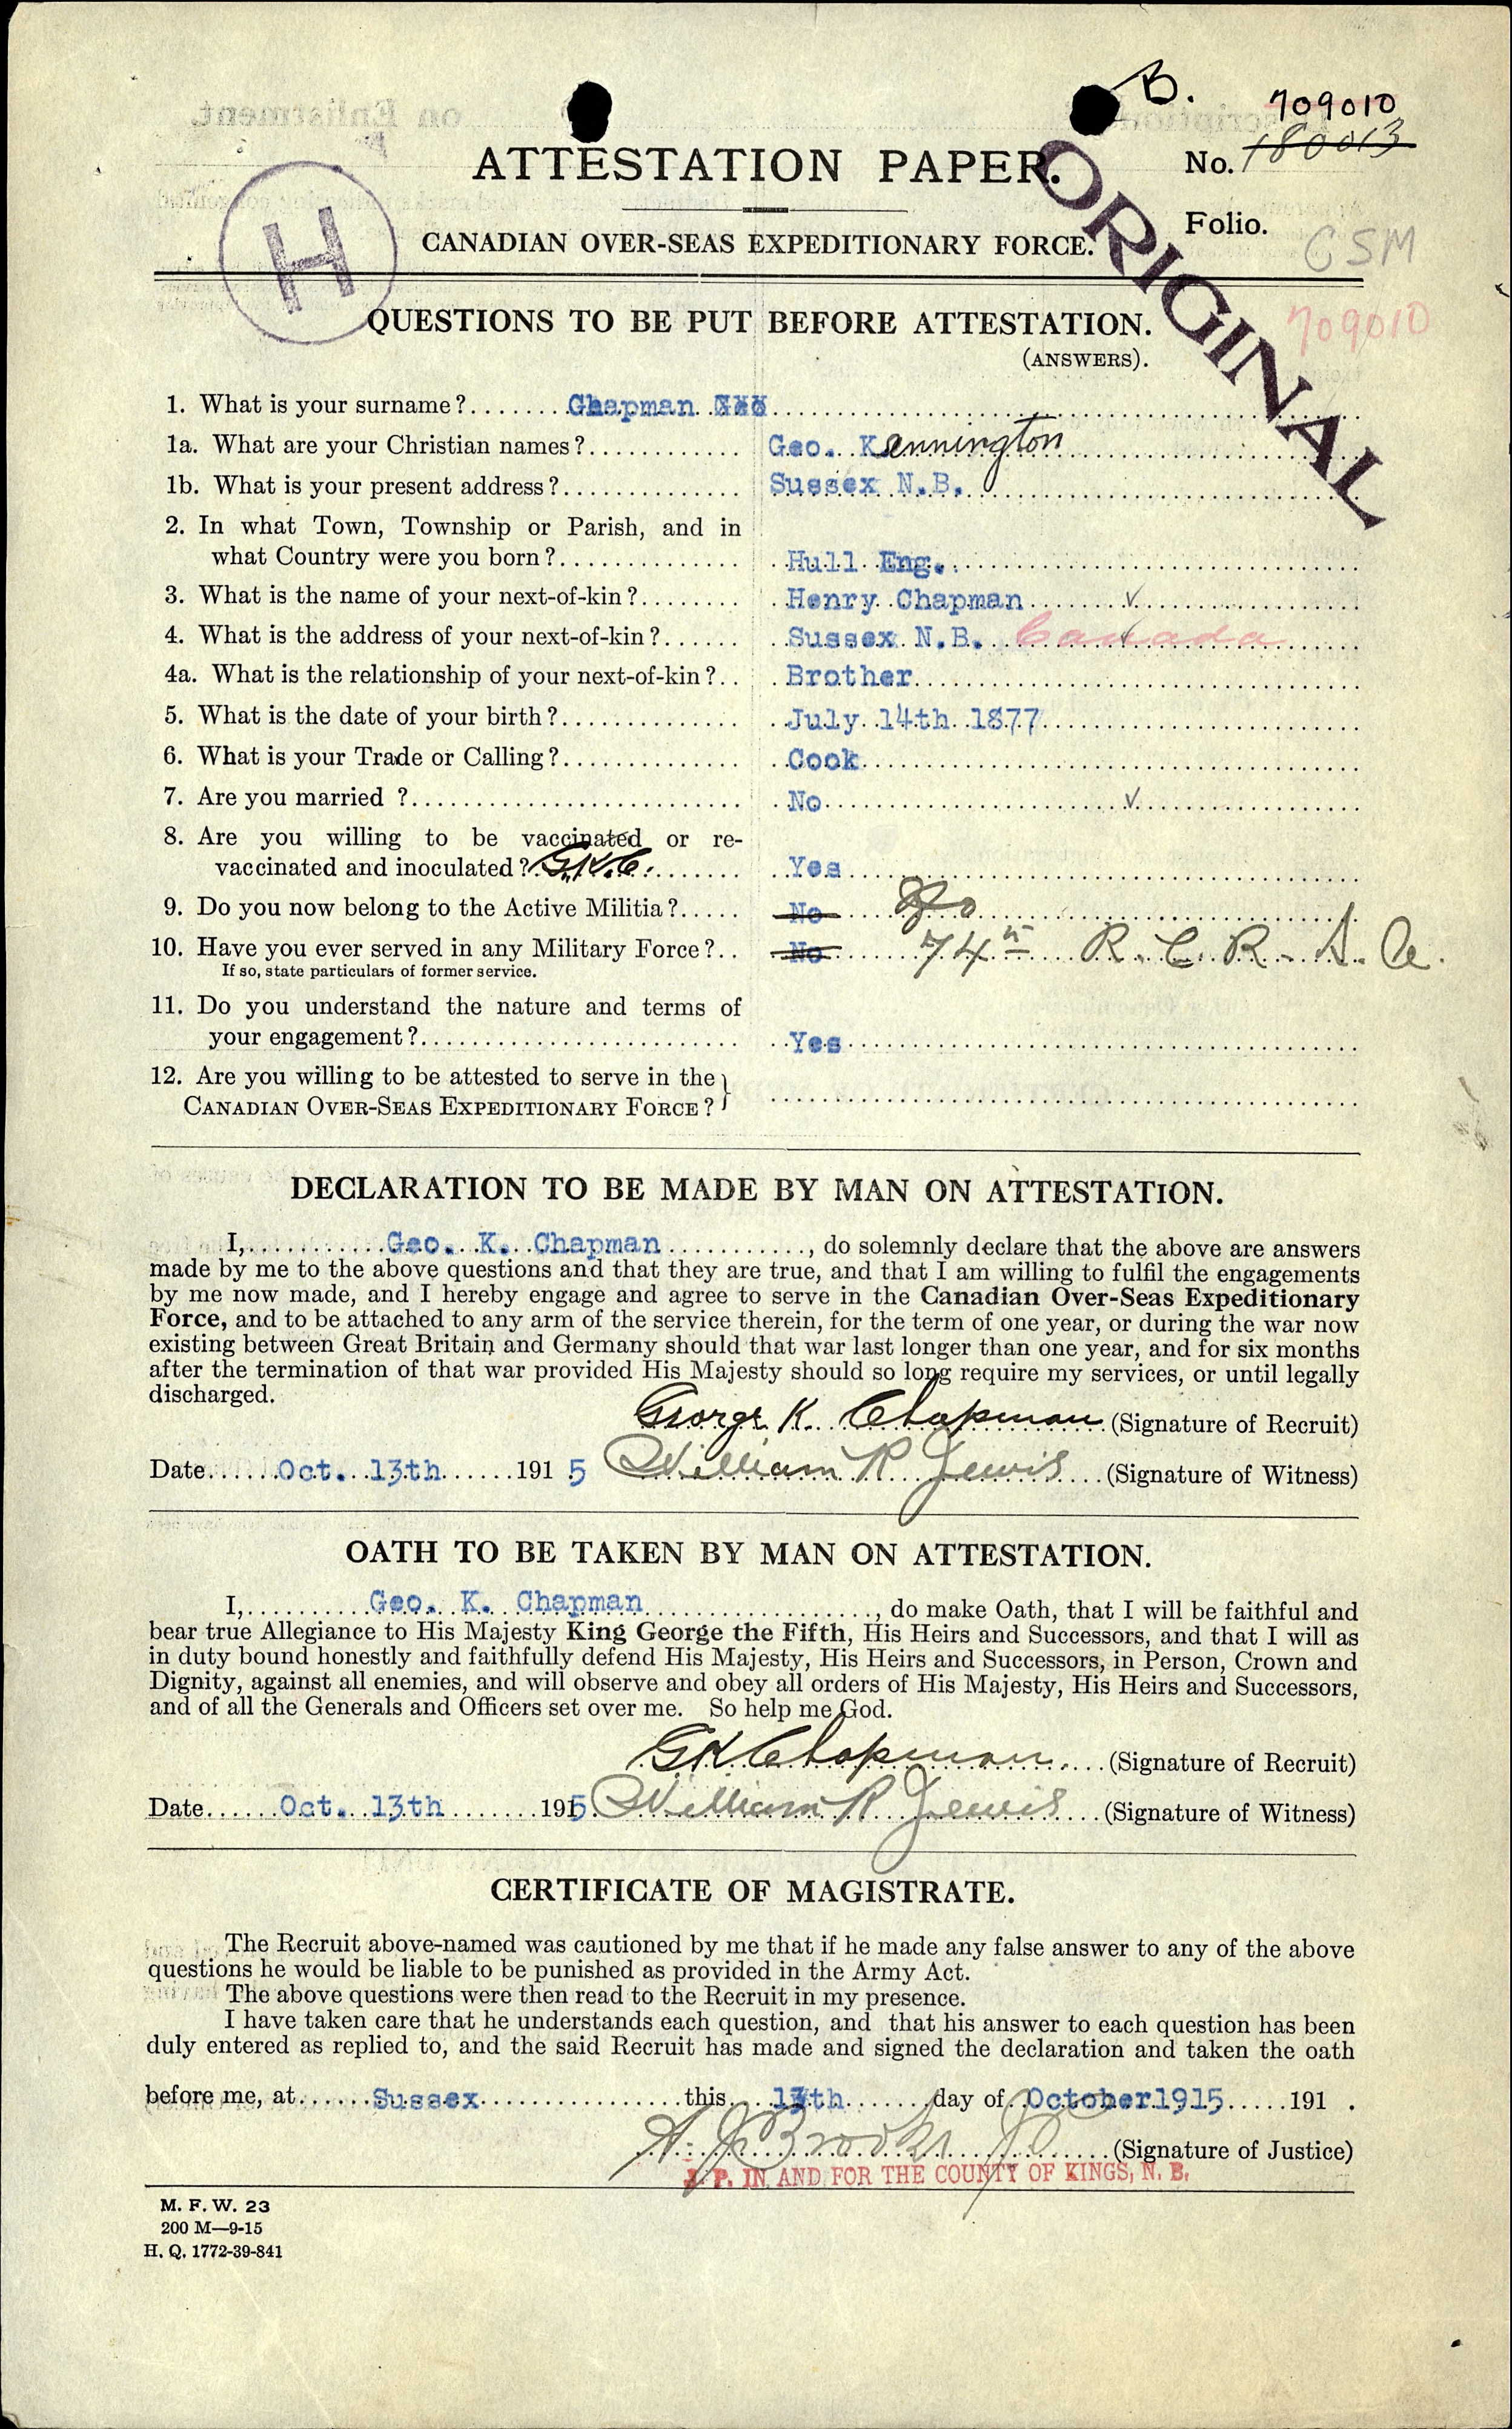 B.
709010
No. 180013
ATTESTATION PAPER.
Folio.
ORIGINAL
H
CANADIAN OVER-SEAS EXPEDITIONARY FORCE.
CSM
709010
QUESTIONS TO BE PUT BEFORE ATTESTATION.
(ANSWERS).
1. What is your surname?........Chapman
1a. What are your Christian names?............ Geo. Kennington
1b. What is your present address?............... Sussex N.B.
2. In what Town, Township or Parish, and in
what Country were you born?............... Hull Eng.
3. What is the name of your next-of-kin?........ Henry Chapman
4. What is the address of your next-of-kin?...... Sussex N.B. Canada
4a. What is the relationship of your next-of-kin?.. Brother
5. What is the date of your birth?............... July 14th 1877
6. What is your Trade or Calling?............... Cook
7. Are you married ?........................... No
8. Are you willing to be vaccinated or re-
vaccinated and inoculated? G.K.C. Yes
9. Do you now belong to the Active Militia?..... No
10. Have you ever served in any Military Force?.. No 74th R. C. R.
If so, state particulars of former service.
11. Do you understand the nature and terms of
your engagement?......................... Yes
12. Are you willing to be attested to serve in the
CANADIAN OVER-SEAS EXPEDITIONARY FORCE?
DECLARATION TO BE MADE BY MAN ON ATTESTATION.
I,............Geo. K. Chapman............, do solemnly declare that the above are answers
made by me to the above questions and that they are true, and that I am willing to fulfil the engagements
by me now made, and I hereby engage and agree to serve in the Canadian Over-Seas Expeditionary
Force, and to be attached to any arm of the service therein, for the term of one year, or during the war now
existing between Great Britain and Germany should that war last longer than one year, and for six months
after the termination of that war provided His Majesty should so long require my services, or until legally
discharged.
George K. Chapman (Signature of Recruit)
Date......Oct. 13th......191 5 William R Lewis (Signature of Witness)
OATH TO BE TAKEN BY MAN ON ATTESTATION.
I,..........Geo. K. Chapman...................., do make Oath, that I will be faithful and
bear true Allegiance to His Majesty King George the Fifth, His Heirs and Successors, and that I will as
in duty bound honestly and faithfully defend His Majesty, His Heirs and Successors, in Person, Crown and
Dignity, against all enemies, and will observe and obey all orders of His Majesty, His Heirs and Successors,
and of all the Generals and Officers set over me. So help me God.
G K Chapman (Signature of Recruit)
Date......Oct. 13th........1915 William R Lewis (Signature of Witness)
CERTIFICATE OF MAGISTRATE.
The Recruit above-named was cautioned by me that if he made any false answer to any of the above
questions he would be liable to be punished as provided in the Army Act.
The above questions were then read to the Recruit in my presence.
I have taken care that he understands each question, and that his answer to each question has been
duly entered as replied to, and the said Recruit has made and signed the declaration and taken the oath
before me, at......Sussex..................this....13th.......day of October1915.....191 .
A. J. Brooks (Signature of Justice)
J. P. IN AND FOR THE COUNTY OF KINGS, N. B.
M. F. W. 23
200 M—9-15
H. Q. 1772-39-841